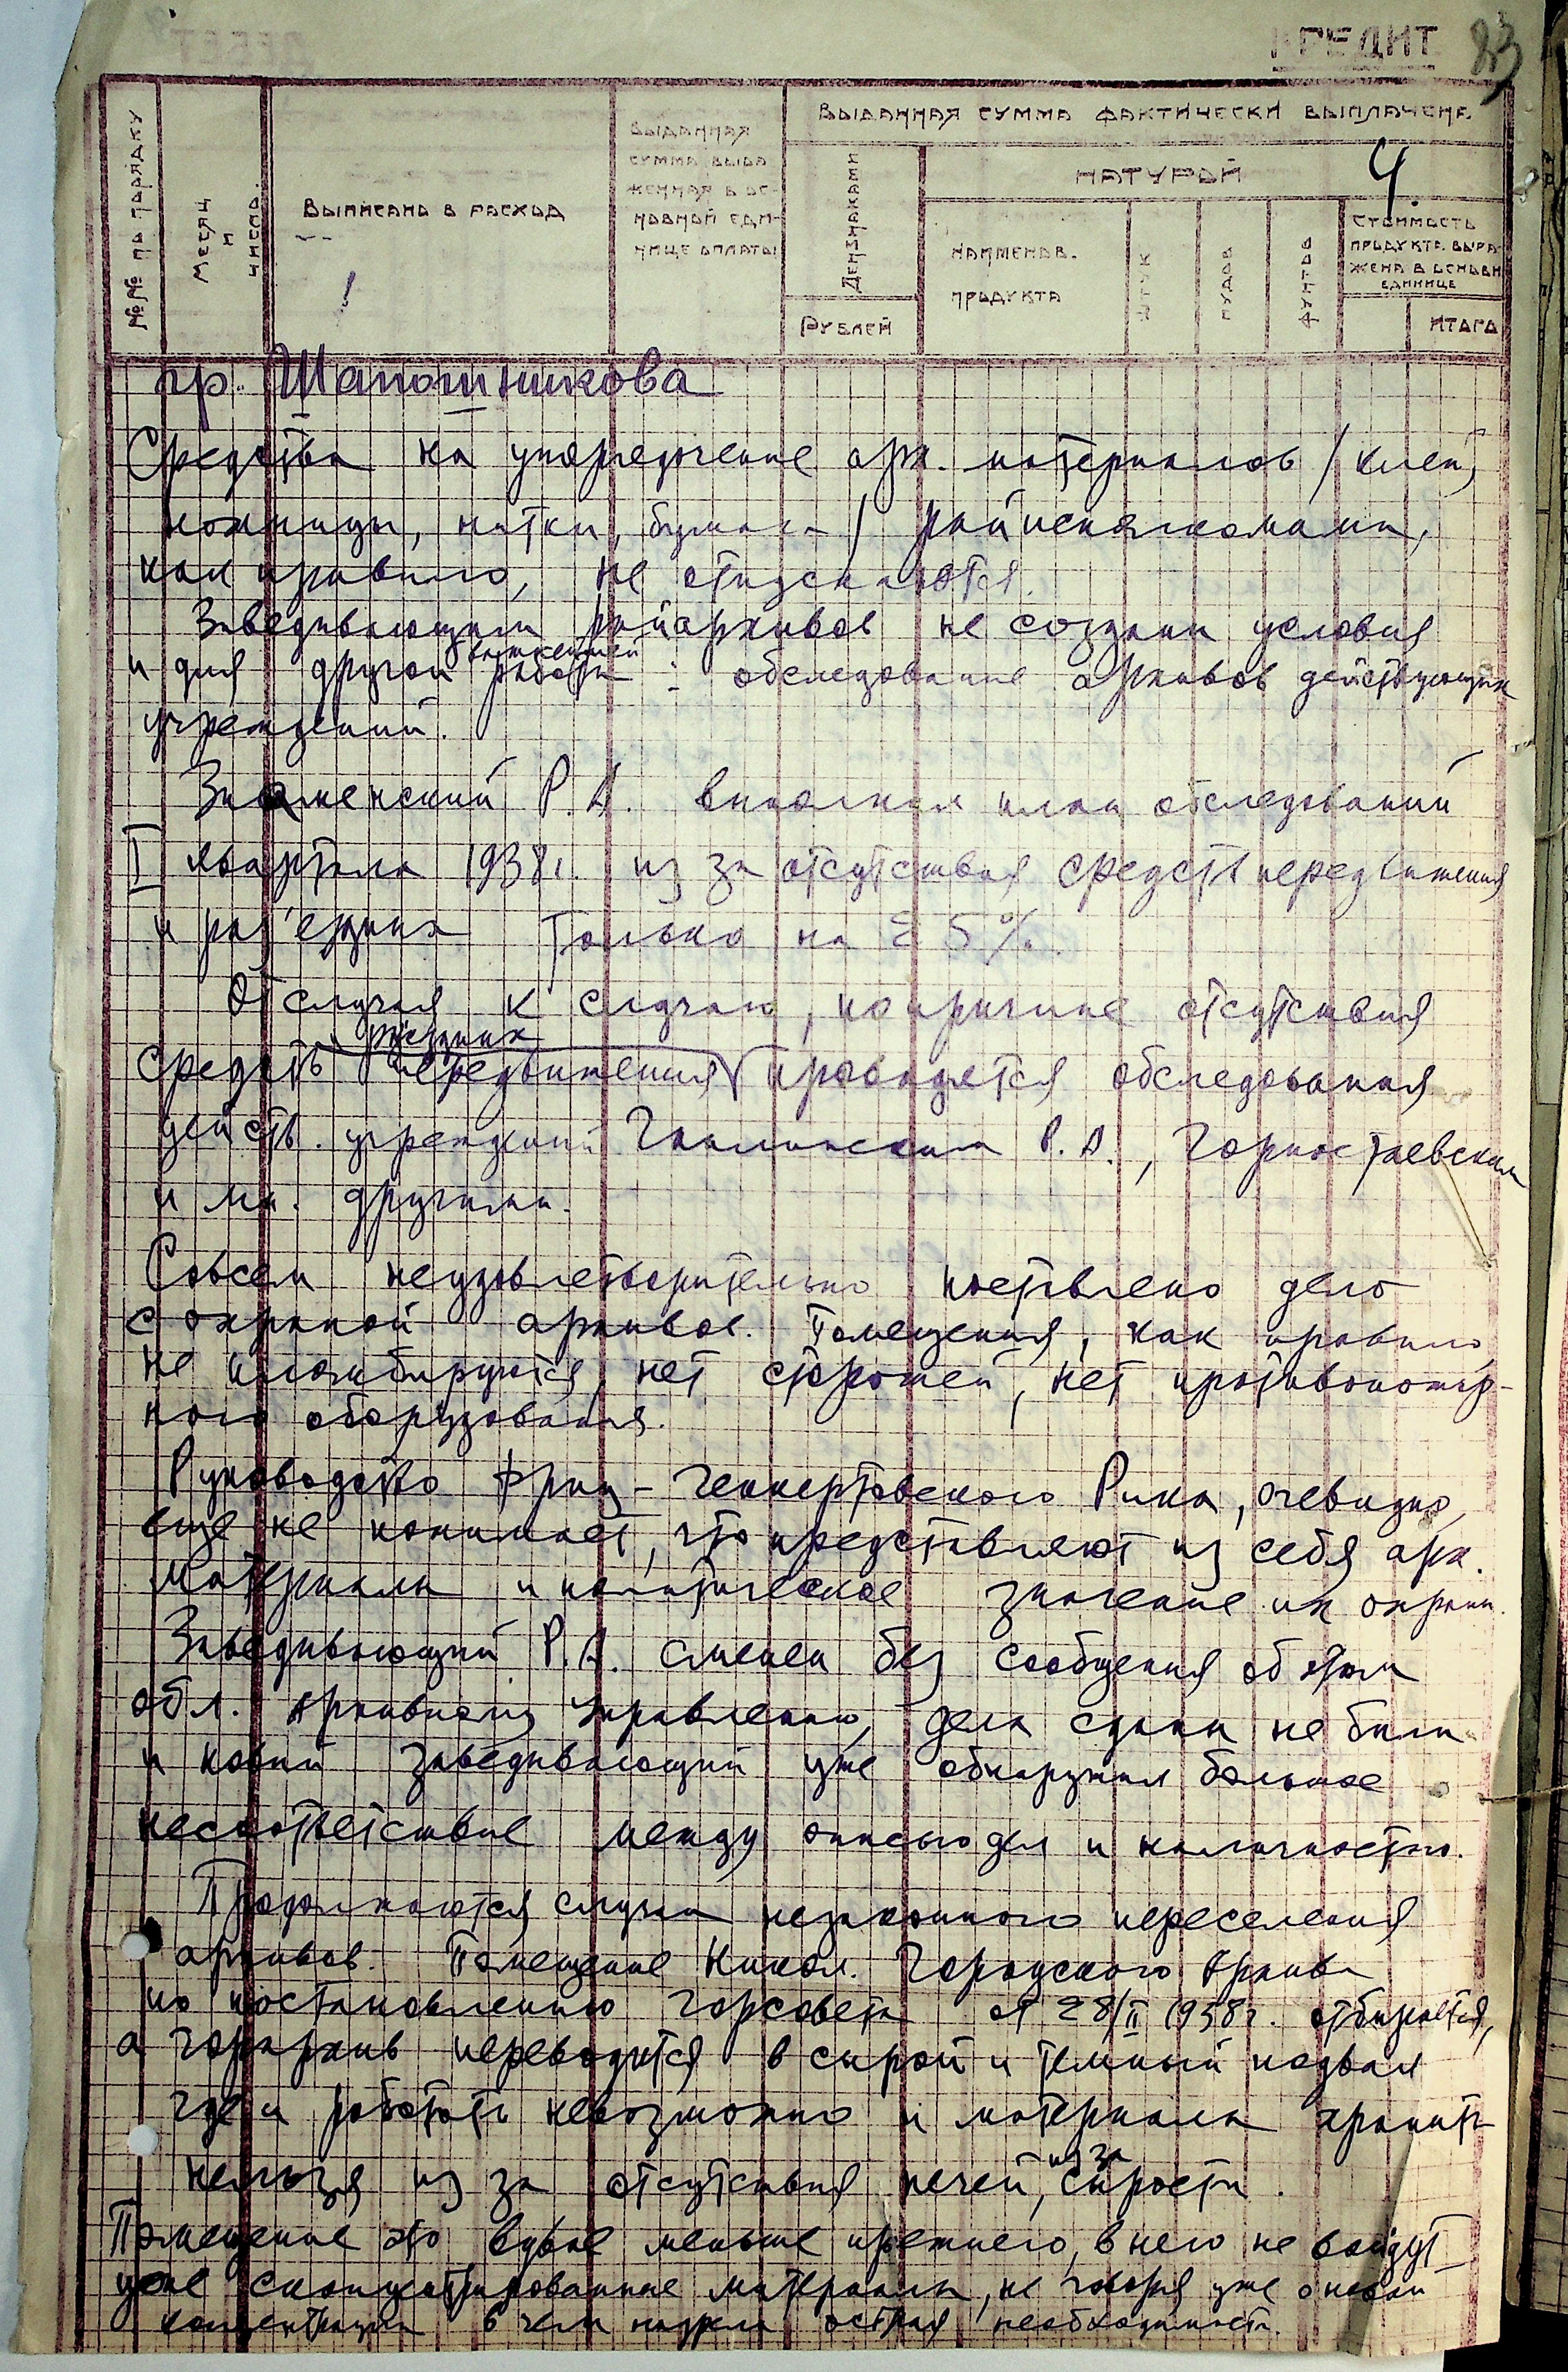 КРЕДИТ 83
№№ по порядку
Месяц и число.
Выписано в расход
Выданная сумма выра женная в ос- новной еди- нице оплаты
Выданная сумма фактически выплачена
Дензнаками
Рублей
Натурой
4
Наименов. продукта
Штук
Пудов
Фунтов
Стоимость продукта выра- жена в основн единице
Итого
гр. Шапошникова
Средства на упорядочение арх. материалов /клей,
ножницы, нитки, бумага/ райисполкомами,
как правило, не отпускаются.
Заведывающим райархивов не созданы условия
и для другой важнейшей работы : обследование архивов действующих
учреждений.
Знаменский Р.А. выполнил план обследований
I квартала 1938 г. из за отсутствия средств передвижения
и раз'ездных только на 25%.
От случая к случаю, по причине отсутствия
средств передвижения разъездных проводятся обследования
действ. учреждений Р.А., Горностаевским
и мн. другими.
Совсем неудовлетворительно поставлено дело
с охраной архивов. Помещения, как правило,
не пломбируются, нет сторожей, нет противопожар-
ного оборудования.
Руководство Фриц-Геккертовского Рика, очевидно,
еще не понимает, что представляют из себя арх.
материалы и политическое значение их охраны.
Заведывающий Р.А. сменен без сообщения об этом
обл. архивному управлению, дела сданы не были
и новый заведывающий уже обнаружил большое
несоответствие между описью дел и наличностью.
Продолжаются случаи незаконного переселения
архивов. Помещение Никол. Городского Архива
по постановлению горсовета от 28/II 1938 г. отбирается,
а горархив переводится в сырой и темный подвал
где и работать невозможно и материалы хранить
нельзя из за отсутствия печей, из за сырости.
Помещение это вдвое меньше прежнего, в него не войдут
уже сконцентрированные материалы, не говоря уже о новой
концентрации в чем назрела острая необходимость.